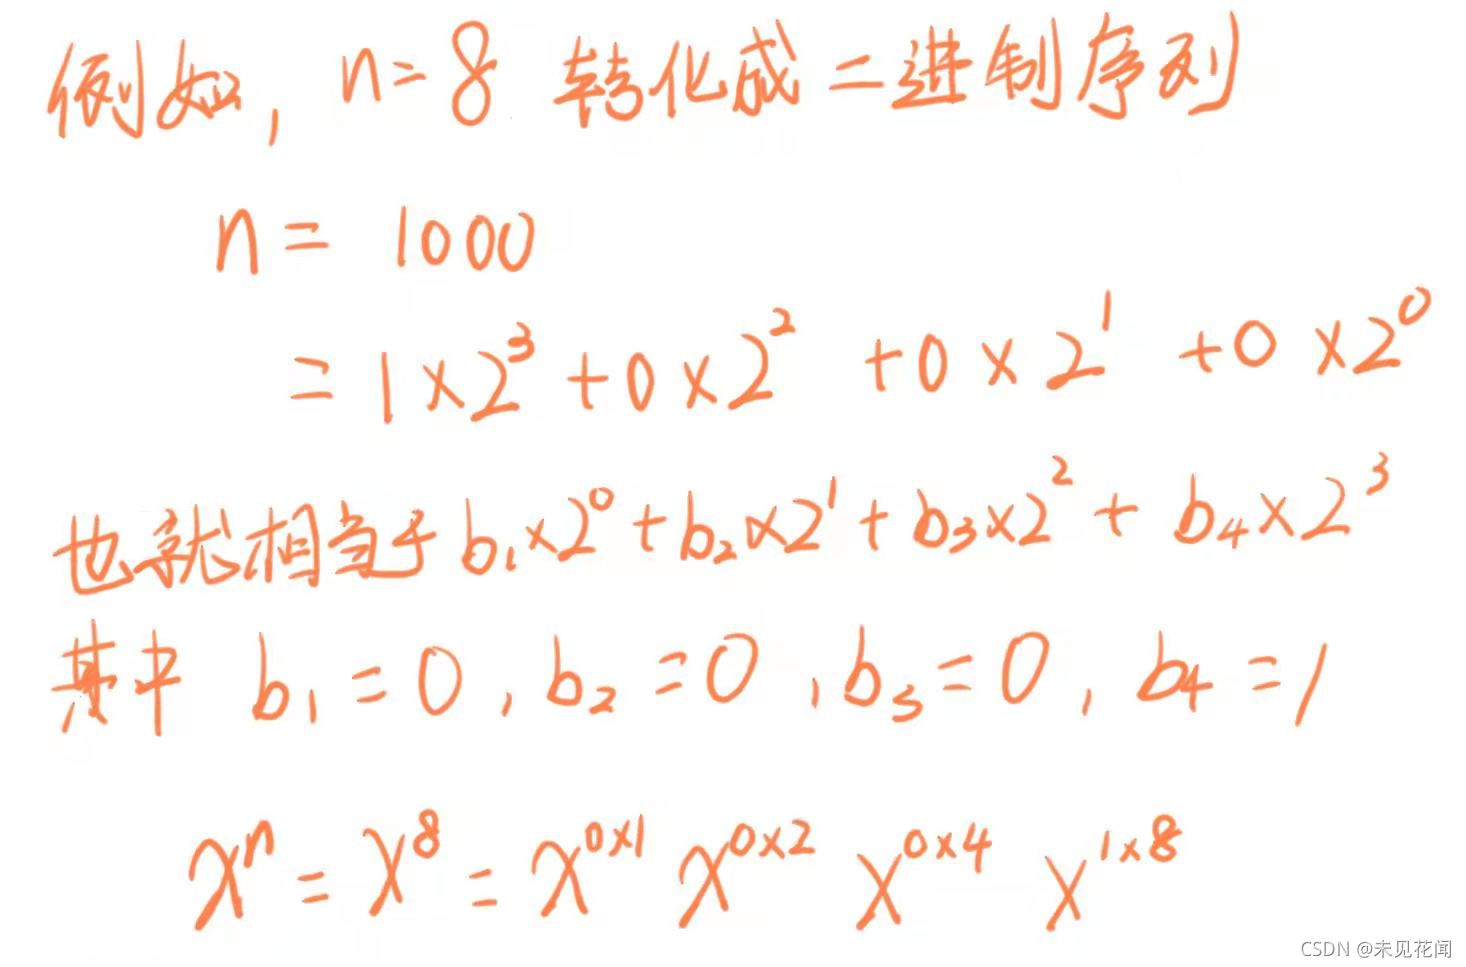 例如, n=8 转化成二进制序列
n= 1000
= 1×2³+0×2² +0×2¹ +0×2⁰
也就相当于b₁×2⁰+b₂×2¹+b₃×2²+ b₄×2³
其中 b₁=0, b₂=0, b₃=0, b₄=1
xⁿ = x⁸ = x^{0×1} x^{0×2} x^{0×4} x^{1×8}
CSDN @未见花闻